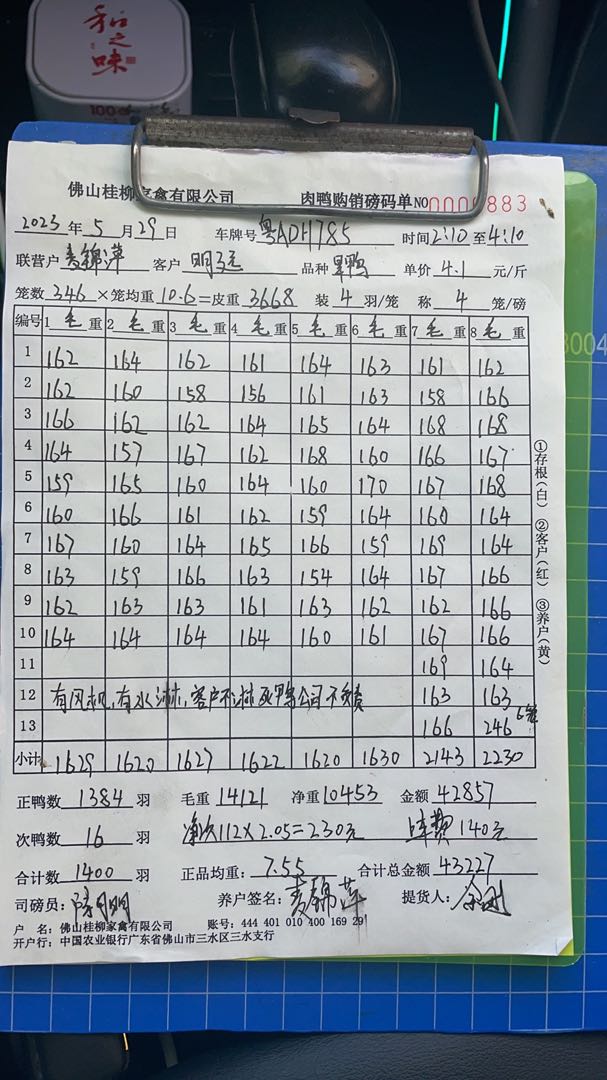 和之味
100%
佛山桂柳家禽有限公司 肉鸭购销磅码单 NO 000 883
2023 年 5 月 29 日 车牌号 粤ADH785 时间 2:10 至 4:10
联营户 锦萍 客户 明 品种 鸭 单价 4.1 元/斤
笼数 346 ×笼均重 10.6 =皮重 3668 装 4 羽/笼 称 4 笼/磅
编号 1 毛 重 2 毛 重 3 毛 重 4 毛 重 5 毛 重 6 毛 重 7 毛 重 8 毛 重
1 162 164 162 161 164 163 161 162
2 162 160 158 156 161 163 158 166
3 166 162 162 164 165 164 168 168
4 164 157 167 162 168 160 166 167
5 159 165 160 164 160 170 167 168
6 160 166 161 162 159 164 160 164
7 167 160 164 165 166 159 169 164
8 163 159 166 163 154 164 167 166
9 162 163 163 161 163 162 162 166
10 164 164 164 164 160 161 167 166
11 169 164
12 有风机,有水淋,客户不淋死鸭公司不负责 163 163
13 166 246 6笼
小计 1629 1620 1627 1622 1620 1630 2143 2230
正鸭数 1384 羽 毛重 14121 净重 10453 金额 42857
次鸭数 16 羽 净次112×2.05=230元 费140元
合计数 1400 羽 正品均重: 7.55 合计总金额 43227
司磅员: 明 养户签名: 锦萍 提货人:
户 名: 佛山桂柳家禽有限公司 账号: 444 401 010 400 169 29
开户行: 中国农业银行广东省佛山市三水区三水支行
①存根(白) ②客户(红) ③养户(黄)
3004